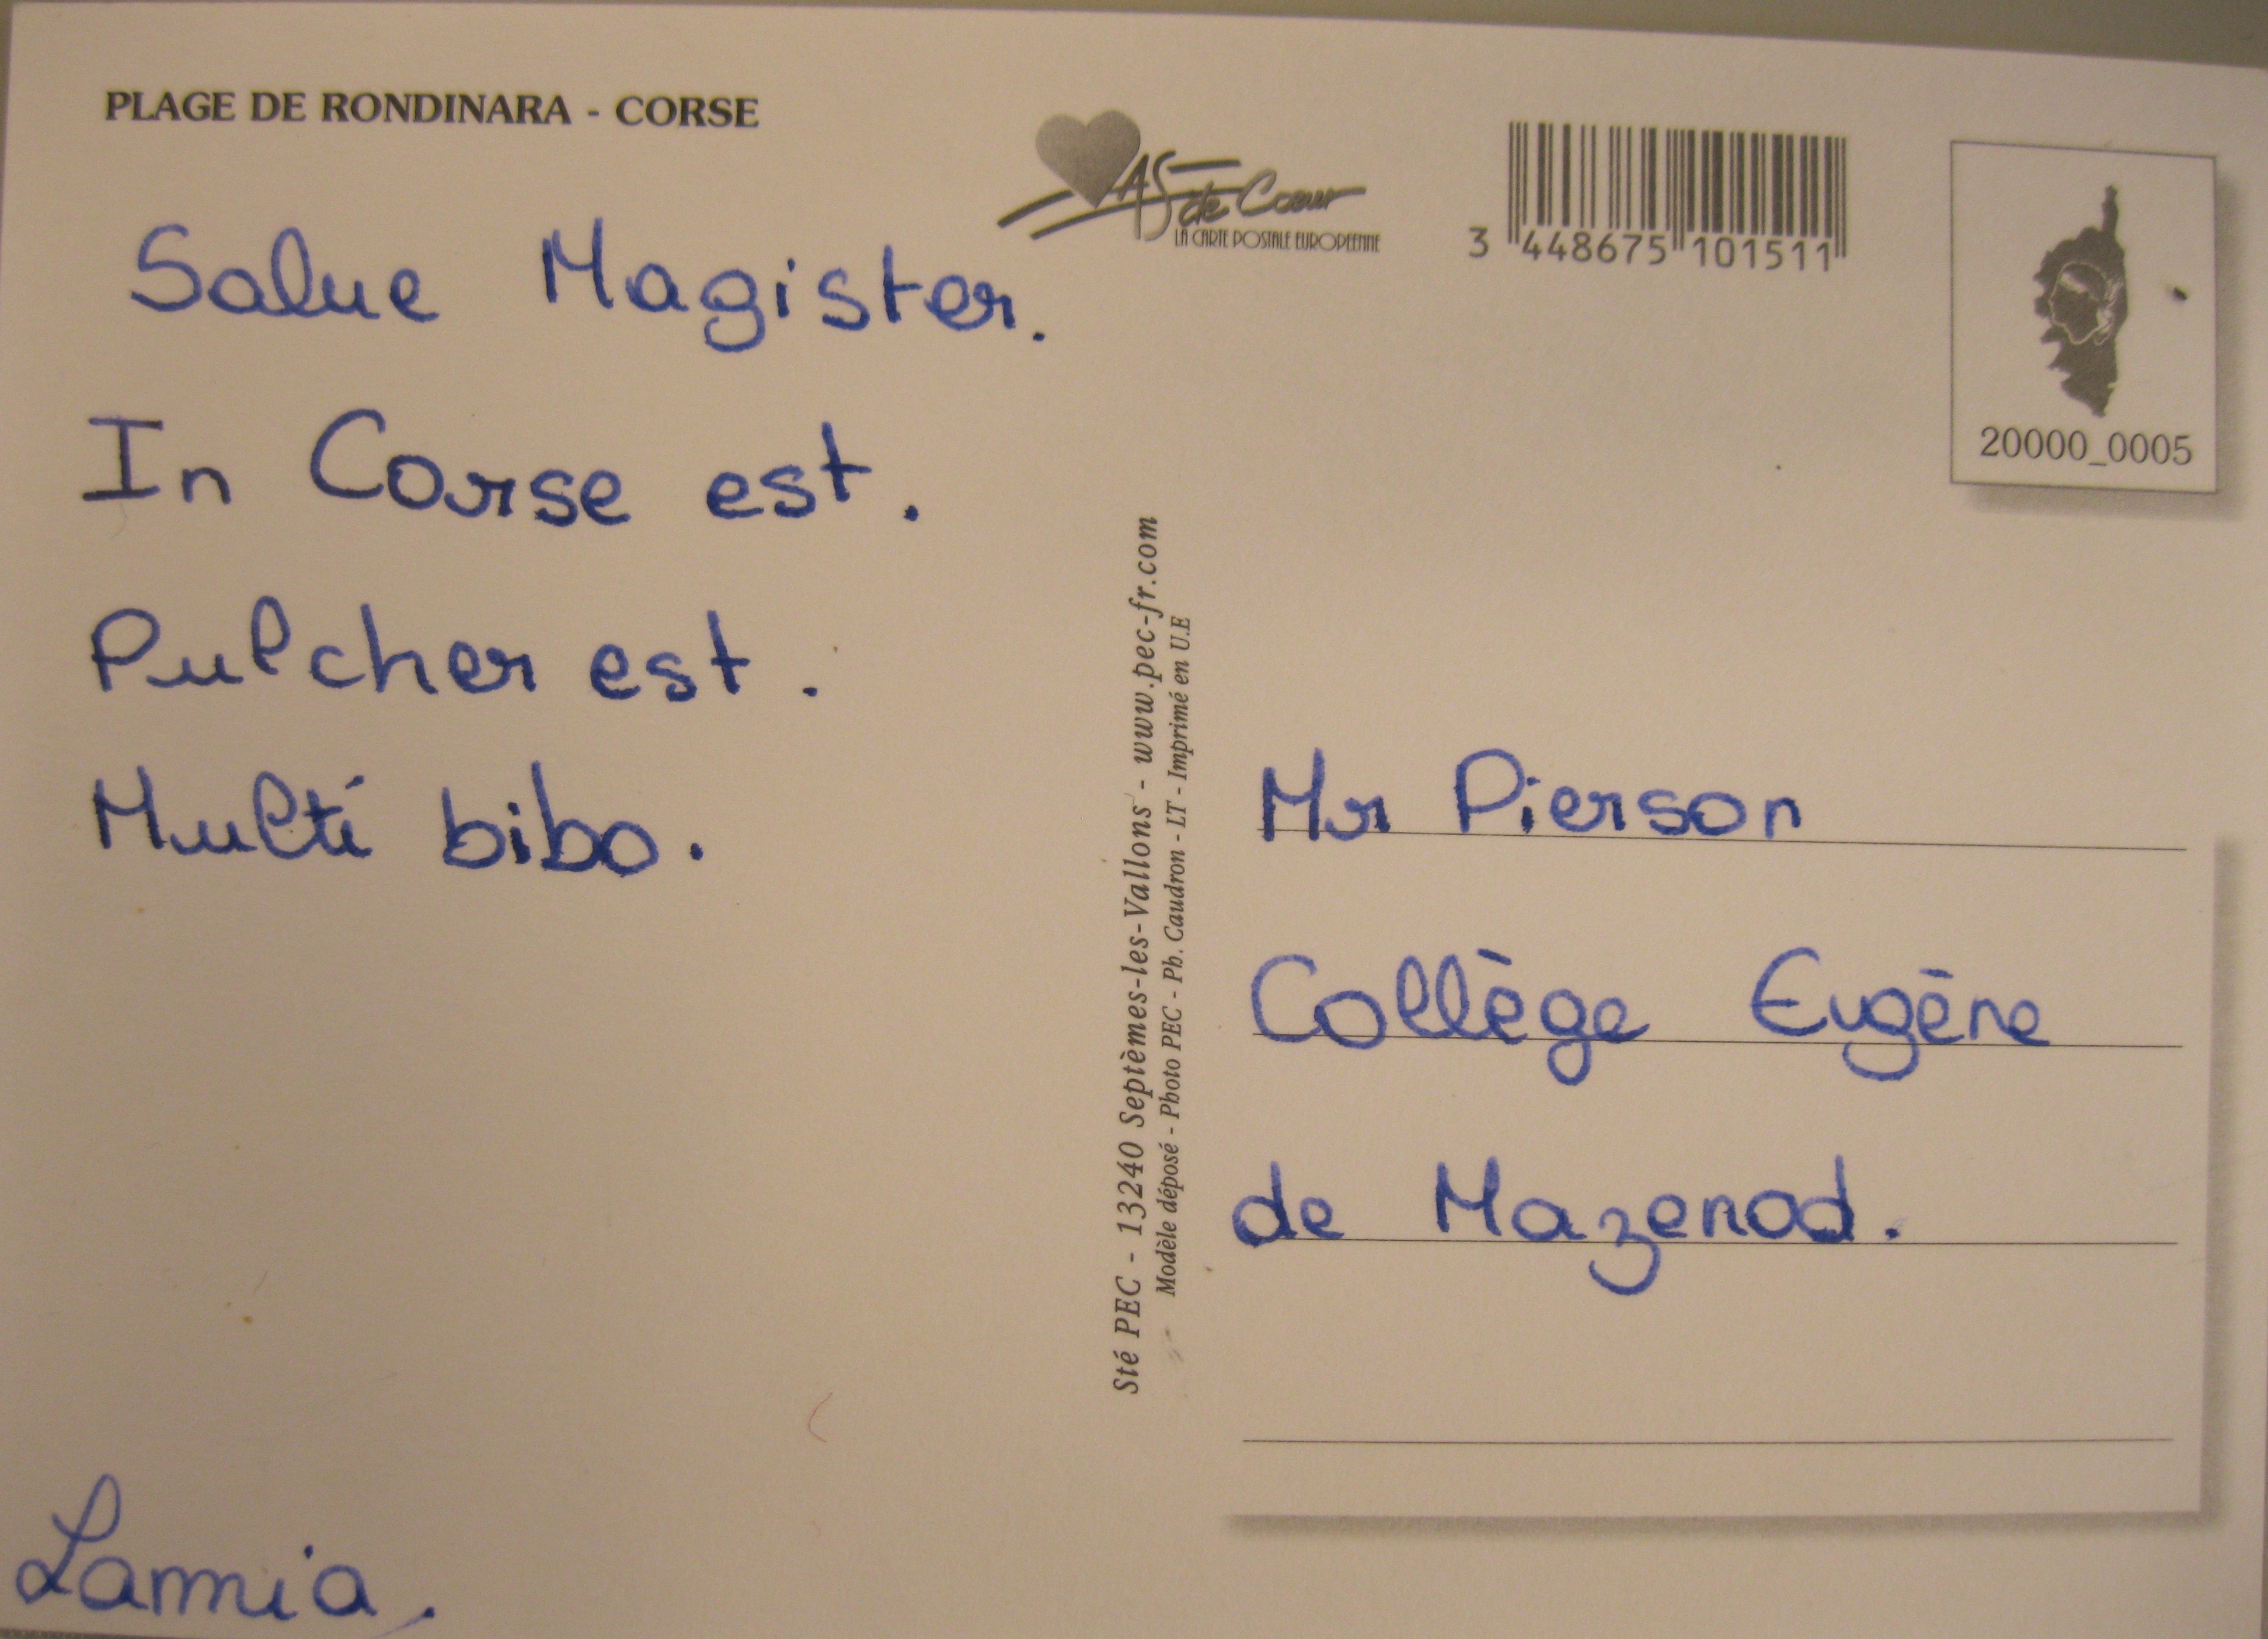 PLAGE DE RONDINARA - CORSE
Salue Magister.
In Corse est.
Pulcher est.
Multi bibo.
Lamia.
AS de Coeur
LA CARTE POSTALE EUROPEENNE
3 448675 101511
20000_0005
Sté PEC - 13240 Septèmes-les-Vallons - www.pec-fr.com
Modèle déposé - Photo PEC - Ph. Caudron - LT - Imprimé en U.E
Mr Pierson
Collège Eugène
de Mazenod.